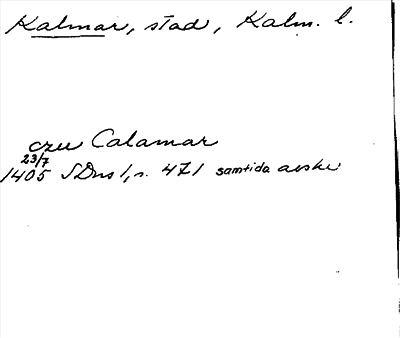 Kalmar, stad, Kalm. l.
czu Calamar
23/7
1405 SDns 1, s. 471 samtida avskr